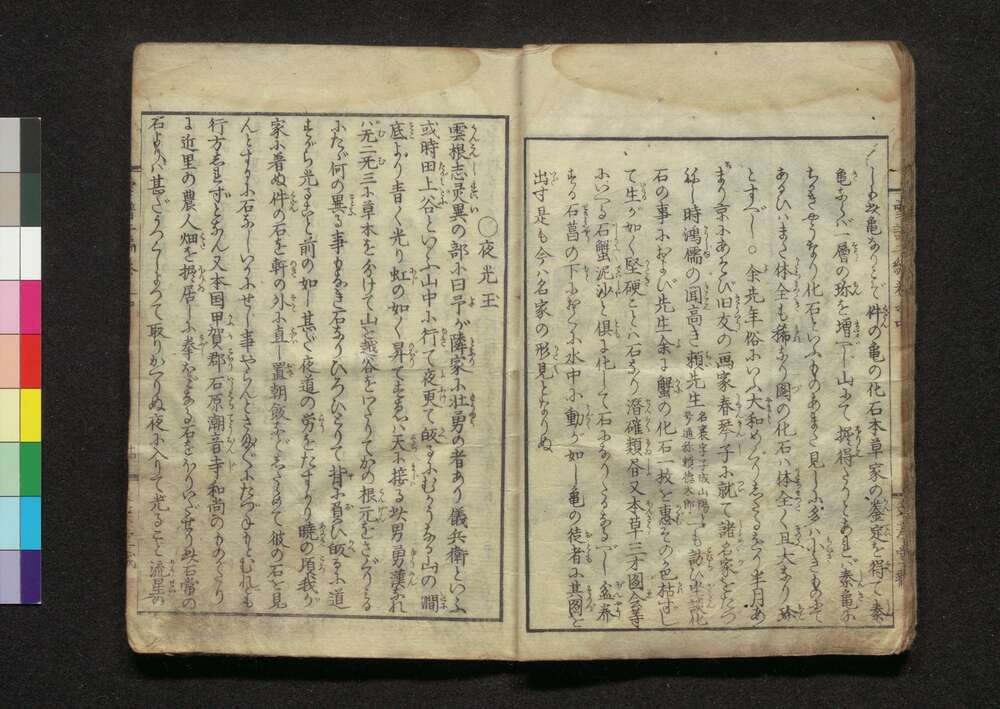 しかも亀ありとぞ件の亀の化石本草家の鑒定を得て秦
亀ならバ一層の珍を増べし山にて掘得たりとあれバ秦亀に
ちかきやうなり化石といふものあまた見しに多ハ小きものにて
あるひハまた体全も稀なり図の化石ハ体全く且大なり珍
とすべし○余先年俗にいふ大和めぐりしたるをり半月あ
まり京にあそび旧友の画家春琴子に就て諸名家をたづ
ねし時鴻儒の聞高き頼先生 名襄字子成山陽 号通称頼徳太郎 へも訪ひ 談化
石の事におよび先生余に蟹の化石一枚を恵その色枯ずし
て生が如く堅硬ことハ石なり潜確類昚又本草三才図会等
にいへる石蟹泥沙と倶に化して石になりたるなるべし盆養
する石菖の下におくに水中に動が如し亀の徒者に其図を
出す是も今ハ名家の形見となりぬ
○夜光玉
雲根志灵異の部に曰予が隣家に壮勇の者あり儀兵衛といふ
或時田上谷といふ山中に行て夜更て皈るにむかうなる山の澗
底より青く光り虹の如く昇てすゑハ天に接る此男勇漢なれ
ハ无二无三に草木を分けて山を越谷をわたりてかの根元をさぐりみる
にたゞ何の異る事もなき石なりひろひとりて背に負ひ皈るに道
すがら光ること前の如し甚だ夜道の労をたすけり暁の頃我が
家に着ぬ件の石を軒の外に直し置朝飯などしたゝめて彼の石を見
んとするに石なしいかにせし事やらんとさま〴〵にたづぬれどもとむれども
行方しれずとなん又本国甲賀郡石原潮音寺和尚のものがたり
に近里の農人畑を掘居しに拳ほどなる石をほりいだせり此石常の
石よりハ甚だうつくしよつて取りかへりぬ夜に入りて光ること流星の